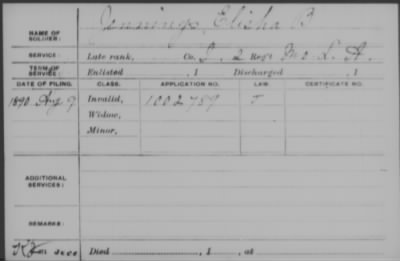 NAME OF SOLDIER: Jennings, Elisha B
SERVICE: Late rank, Co. I, 2 Reg't Mo L. A.
TERM OF SERVICE: Enlisted , 1 Discharged , 1
DATE OF FILING. CLASS. APPLICATION NO. LAW. CERTIFICATE NO.
1890 Aug 9 Invalid, 1002789
Widow,
Minor,
ADDITIONAL SERVICES:
REMARKS:
Died , 1 , at